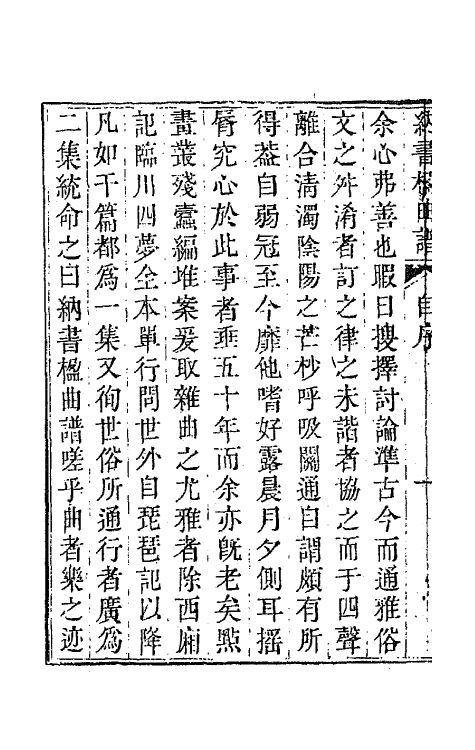 納書楹曲譜 自序 一
余心弗善也暇日搜擇討論準古今而通雅俗
文之舛淆者訂之律之未諧者協之而于四聲
離合淸濁陰陽之芒杪呼吸關通自謂頗有所
得葢自弱冠至今靡他嗜好露晨月夕側耳搖
脣究心於此事者垂五十年而余亦旣老矣㸃
畫叢殘蠹編堆案爰取雜曲之尤雅者除西廂
記臨川四夢全本單行問世外自琵琶記以降
凡如干篇都爲一集又徇世俗所通行者廣爲
二集統命之曰納書楹曲譜嗟乎曲者樂之迹